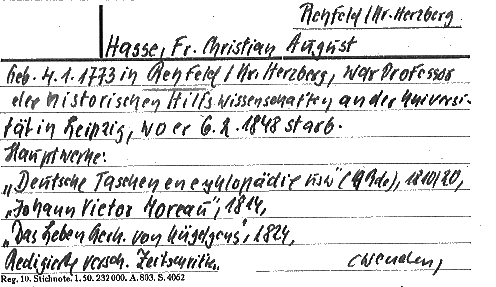 Rehfeld / Kr. Herzberg
Hasse, Fr. Christian August
Geb. 4.1.1773 in Rehfeld / Kr. Herzberg, war Professor
der historischen Hilfswissenschaften an der Universi-
tät in Leipzig, wo er 6.2.1848 starb.
Hauptwerke:
"Deutsche Taschenencyklopädie usw" (4 Bde), 1816/20,
"Johann Victor Moreau", 1816,
"Das Leben Gerh. von Kügelgens", 1824,
Redigierte versch. Zeitschriften.
Reg. 10. Stichnote. 1. 50. 232 000. A. 803. S. 4062